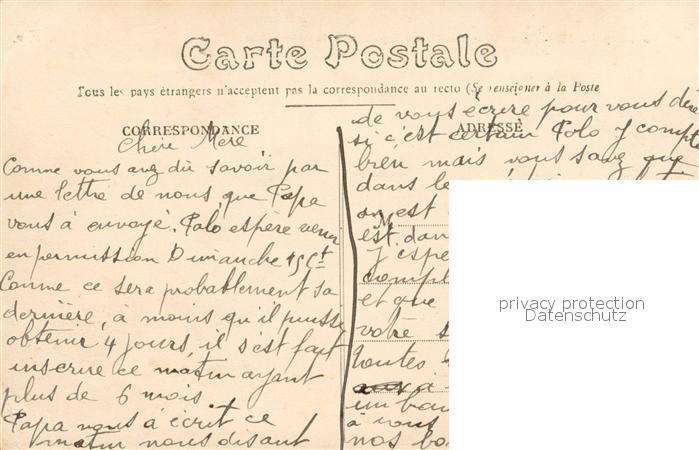 Carte Postale
Tous les pays étrangers n'acceptent pas la correspondance au recto (Se renseigner à la Poste
CORRESPONDANCE
Chère Mère
Comme vous avez dû savoir par
une lettre de nous, que Papa
vous à envoyé. Palo espère venir
en permission Dimanche 15
Comme ce sera probablement sa
dernière, à moins qu'il puisse
obtenir 4 jours, il s'est fait
inscrire ce matin ayant
plus de 6 mois
Papa nous a écrit ce
matin nous disant
ADRESSE
de vous écrire pour vous dire
si c'est certain Polo y compte
bien mais vous savez que
dans le
on est
M
est dan
J'espè
compl
et que
votre s
toutes
à
un bau
à vous
nos bo
privacy protection
Datenschutz